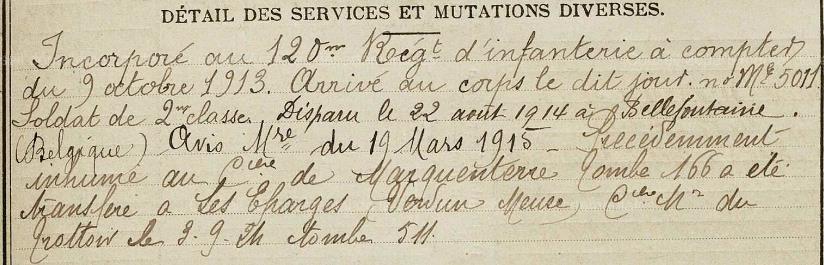 DÉTAIL DES SERVICES ET MUTATIONS DIVERSES.
Incorporé au 120me Régt d'infanterie à compter
du 9 octobre 1913. Arrivé au corps le dit jour. no Mle 5011
Soldat de 2me classe. Disparu le 22 août 1914 à Bellefontaine.
(Belgique) Avis Mre du 19 Mars 1915 - Précédemment
inhumé au Cière de Marquenterre Tombe 166 a été
transféré a Les Eparges (Verdun Meuse) Cière du
Trottoir le 3.9. tombe 511.